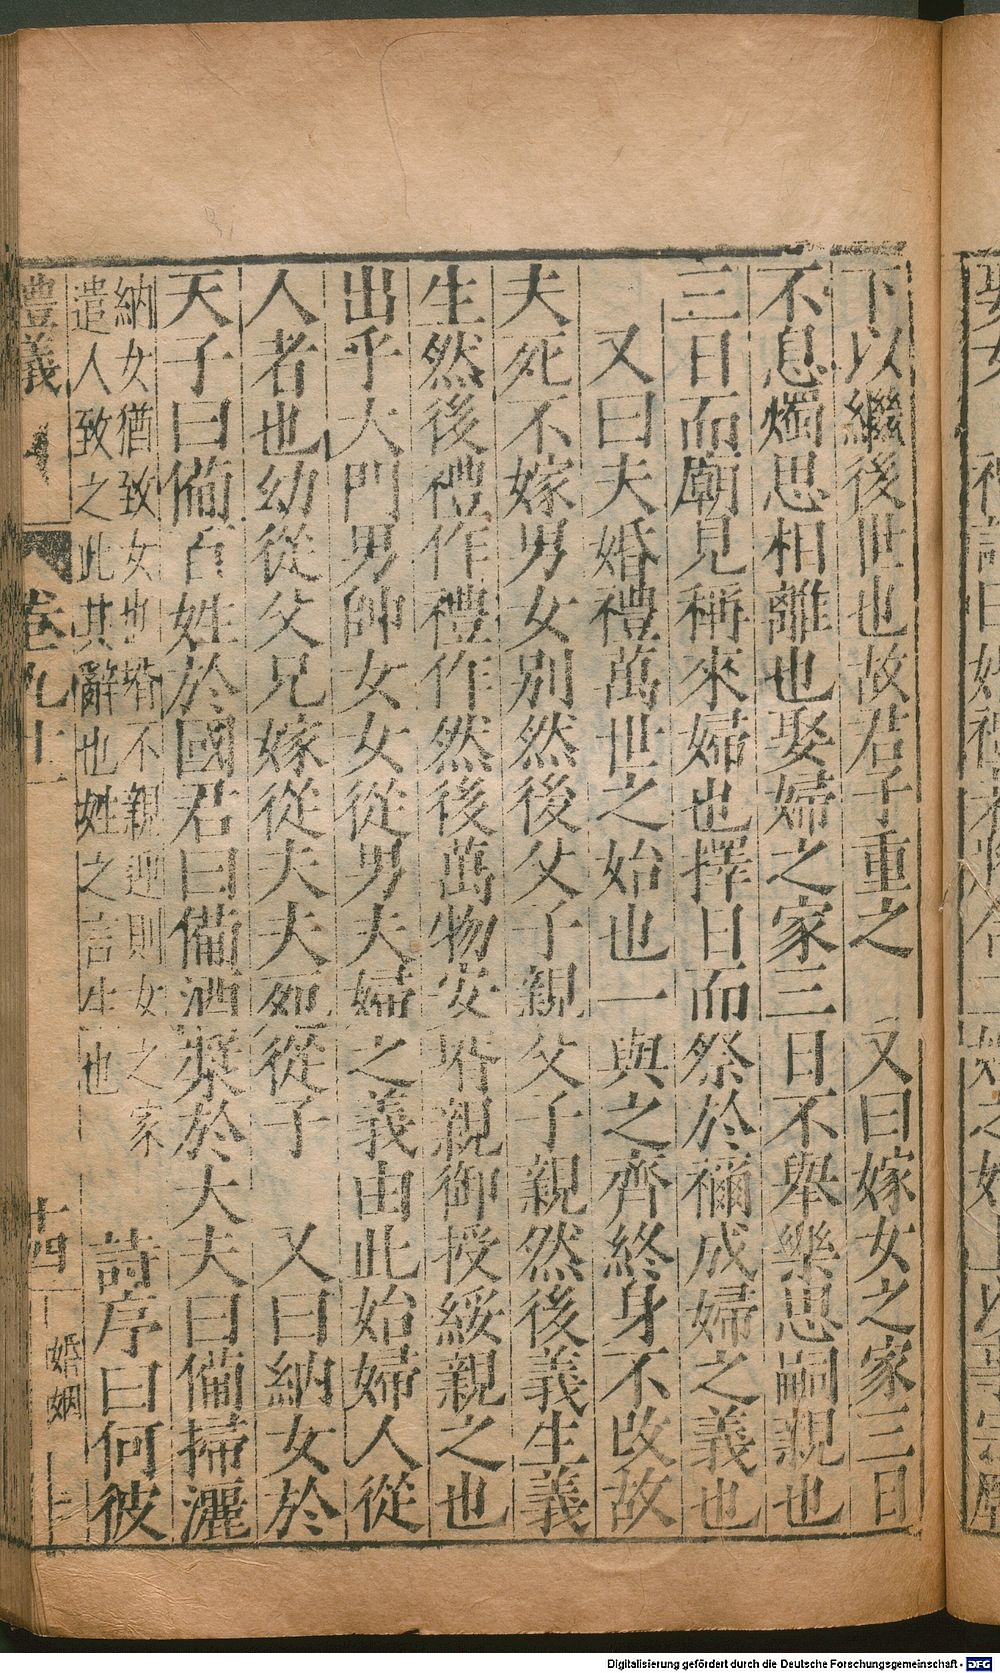 下以繼後世也故君子重之　又曰嫁女之家三日
不息燭思相離也娶婦之家三日不舉樂思嗣親也
三日而廟見稱來婦也擇日而祭於禰成婦之義也
又曰夫婚禮萬世之始也一與之齊終身不改故
夫死不嫁男女別然後父子親父子親然後義生義
生然後禮作禮作然後萬物安壻親御授綏親之也
出乎大門男帥女女從男夫婦之義由此始婦人從
人者也幼從父兄嫁從夫夫死從子　又曰納女於
天子曰備百姓於國君曰備酒漿於大夫曰備掃灑
納女猶致女也壻不親迎則女之家
遣人致之此其辭也姓之言生也
詩序曰何彼
禮義
卷九上
十四
婚姻
Digitalisierung gefördert durch die Deutsche Forschungsgemeinschaft - DFG